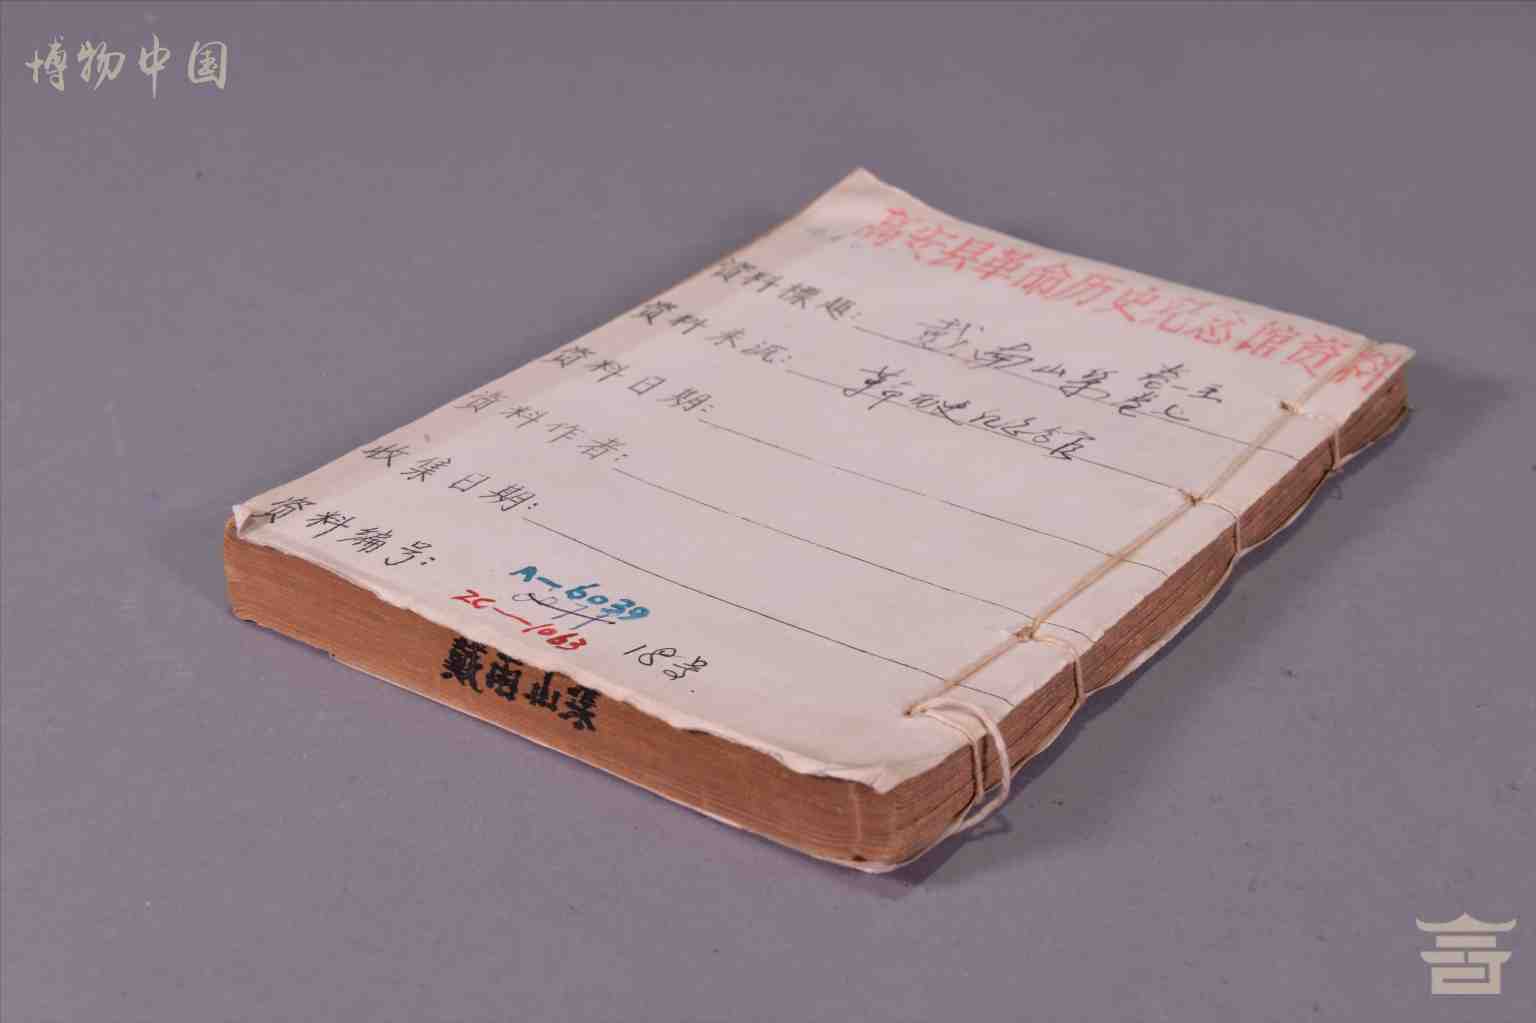 博物中国
高安县革命历史纪念馆资料
资料標题: 戴南山集 卷一至卷七
资料来沅: 革命历史纪念馆
资料日期:
资料作者:
收集日期:
资料编号:
A-6039
ZC-1063
18号
戴南山集